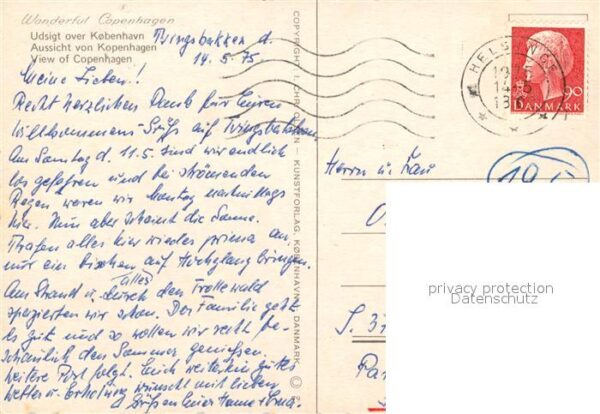 Wonderful Copenhagen
Udsigt over København
Aussicht von Kopenhagen
View of Copenhagen
Tvingsbakken d.
14.5.75
Meine Lieben!!
Recht herzlichen Dank für Euren
Willkommens-Gruß auf Tvingsbakken.
Am Sonntag d. 11.5. sind wir endlich
los gefahren und bei strömendem
Regen waren wir Montag nachmittags
hier. Nun aber scheint die Sonne.
Trafen alles hier wieder prima an,
nur ein bischen auf Hochglanz bringen.
Am Strand u. durch den Trollewald
spazierten wir schon. Der Familie geht
es gut und so wollen wir recht be-
schaulich den Sommer genießen.
weitere Post folgt. Euch weiterhin gutes
Wetter u. Erholung wünscht mit lieben
Grüßen Eure Hanne +
COPYRIGHT: KUNSTFORLAG, KØBENHAVN, DANMARK
©
HELSINGØR
14
90
DANMARK
Herrn u. Frau
195
privacy protection
Datenschutz